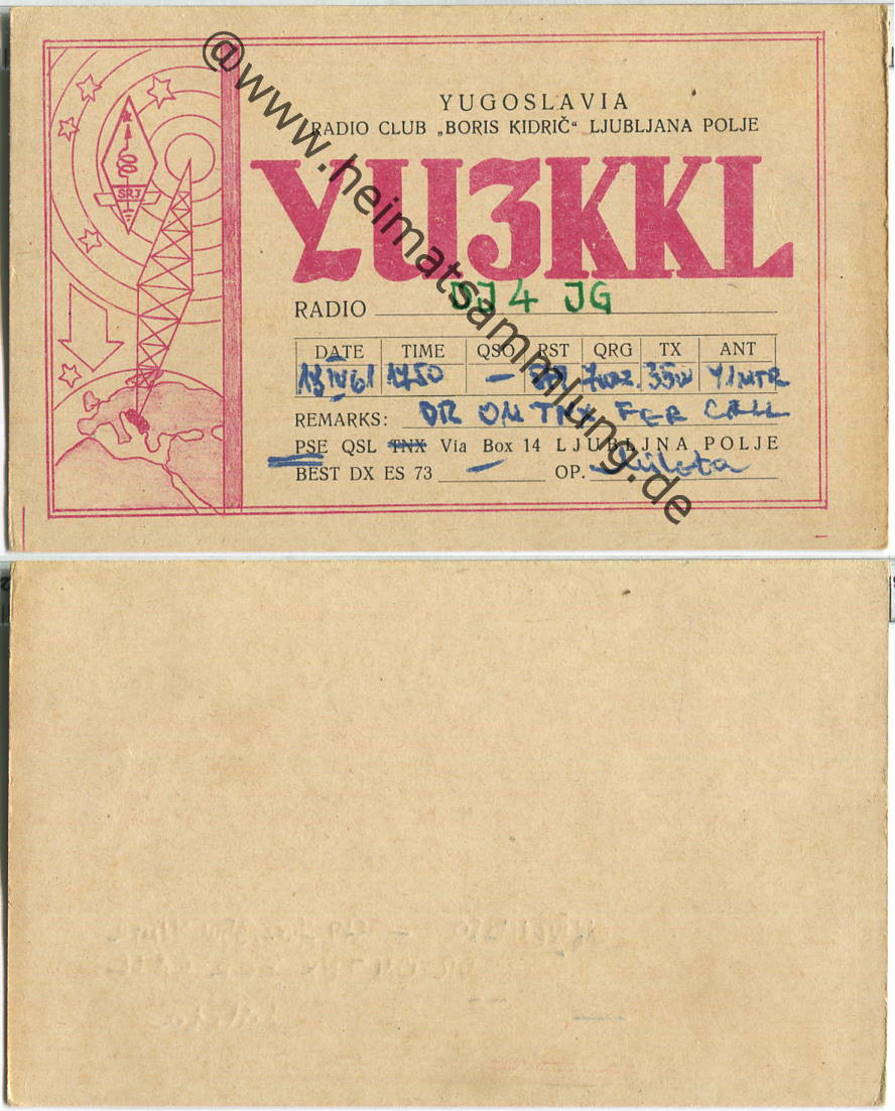 @www.heimatsammlung.de
SRJ
YUGOSLAVIA
RADIO CLUB „BORIS KIDRIČ“ LJUBLJANA POLJE
YU3KKL
RADIO DJ4 JG
DATE TIME QSO RST QRG TX ANT
13 IV 61 1750 — 7MHZ. 35W
REMARKS: DR OM TNX FER CALL
PSE QSL TNX Via Box 14 LJUBLJNA POLJE
BEST DX ES 73 — OP.